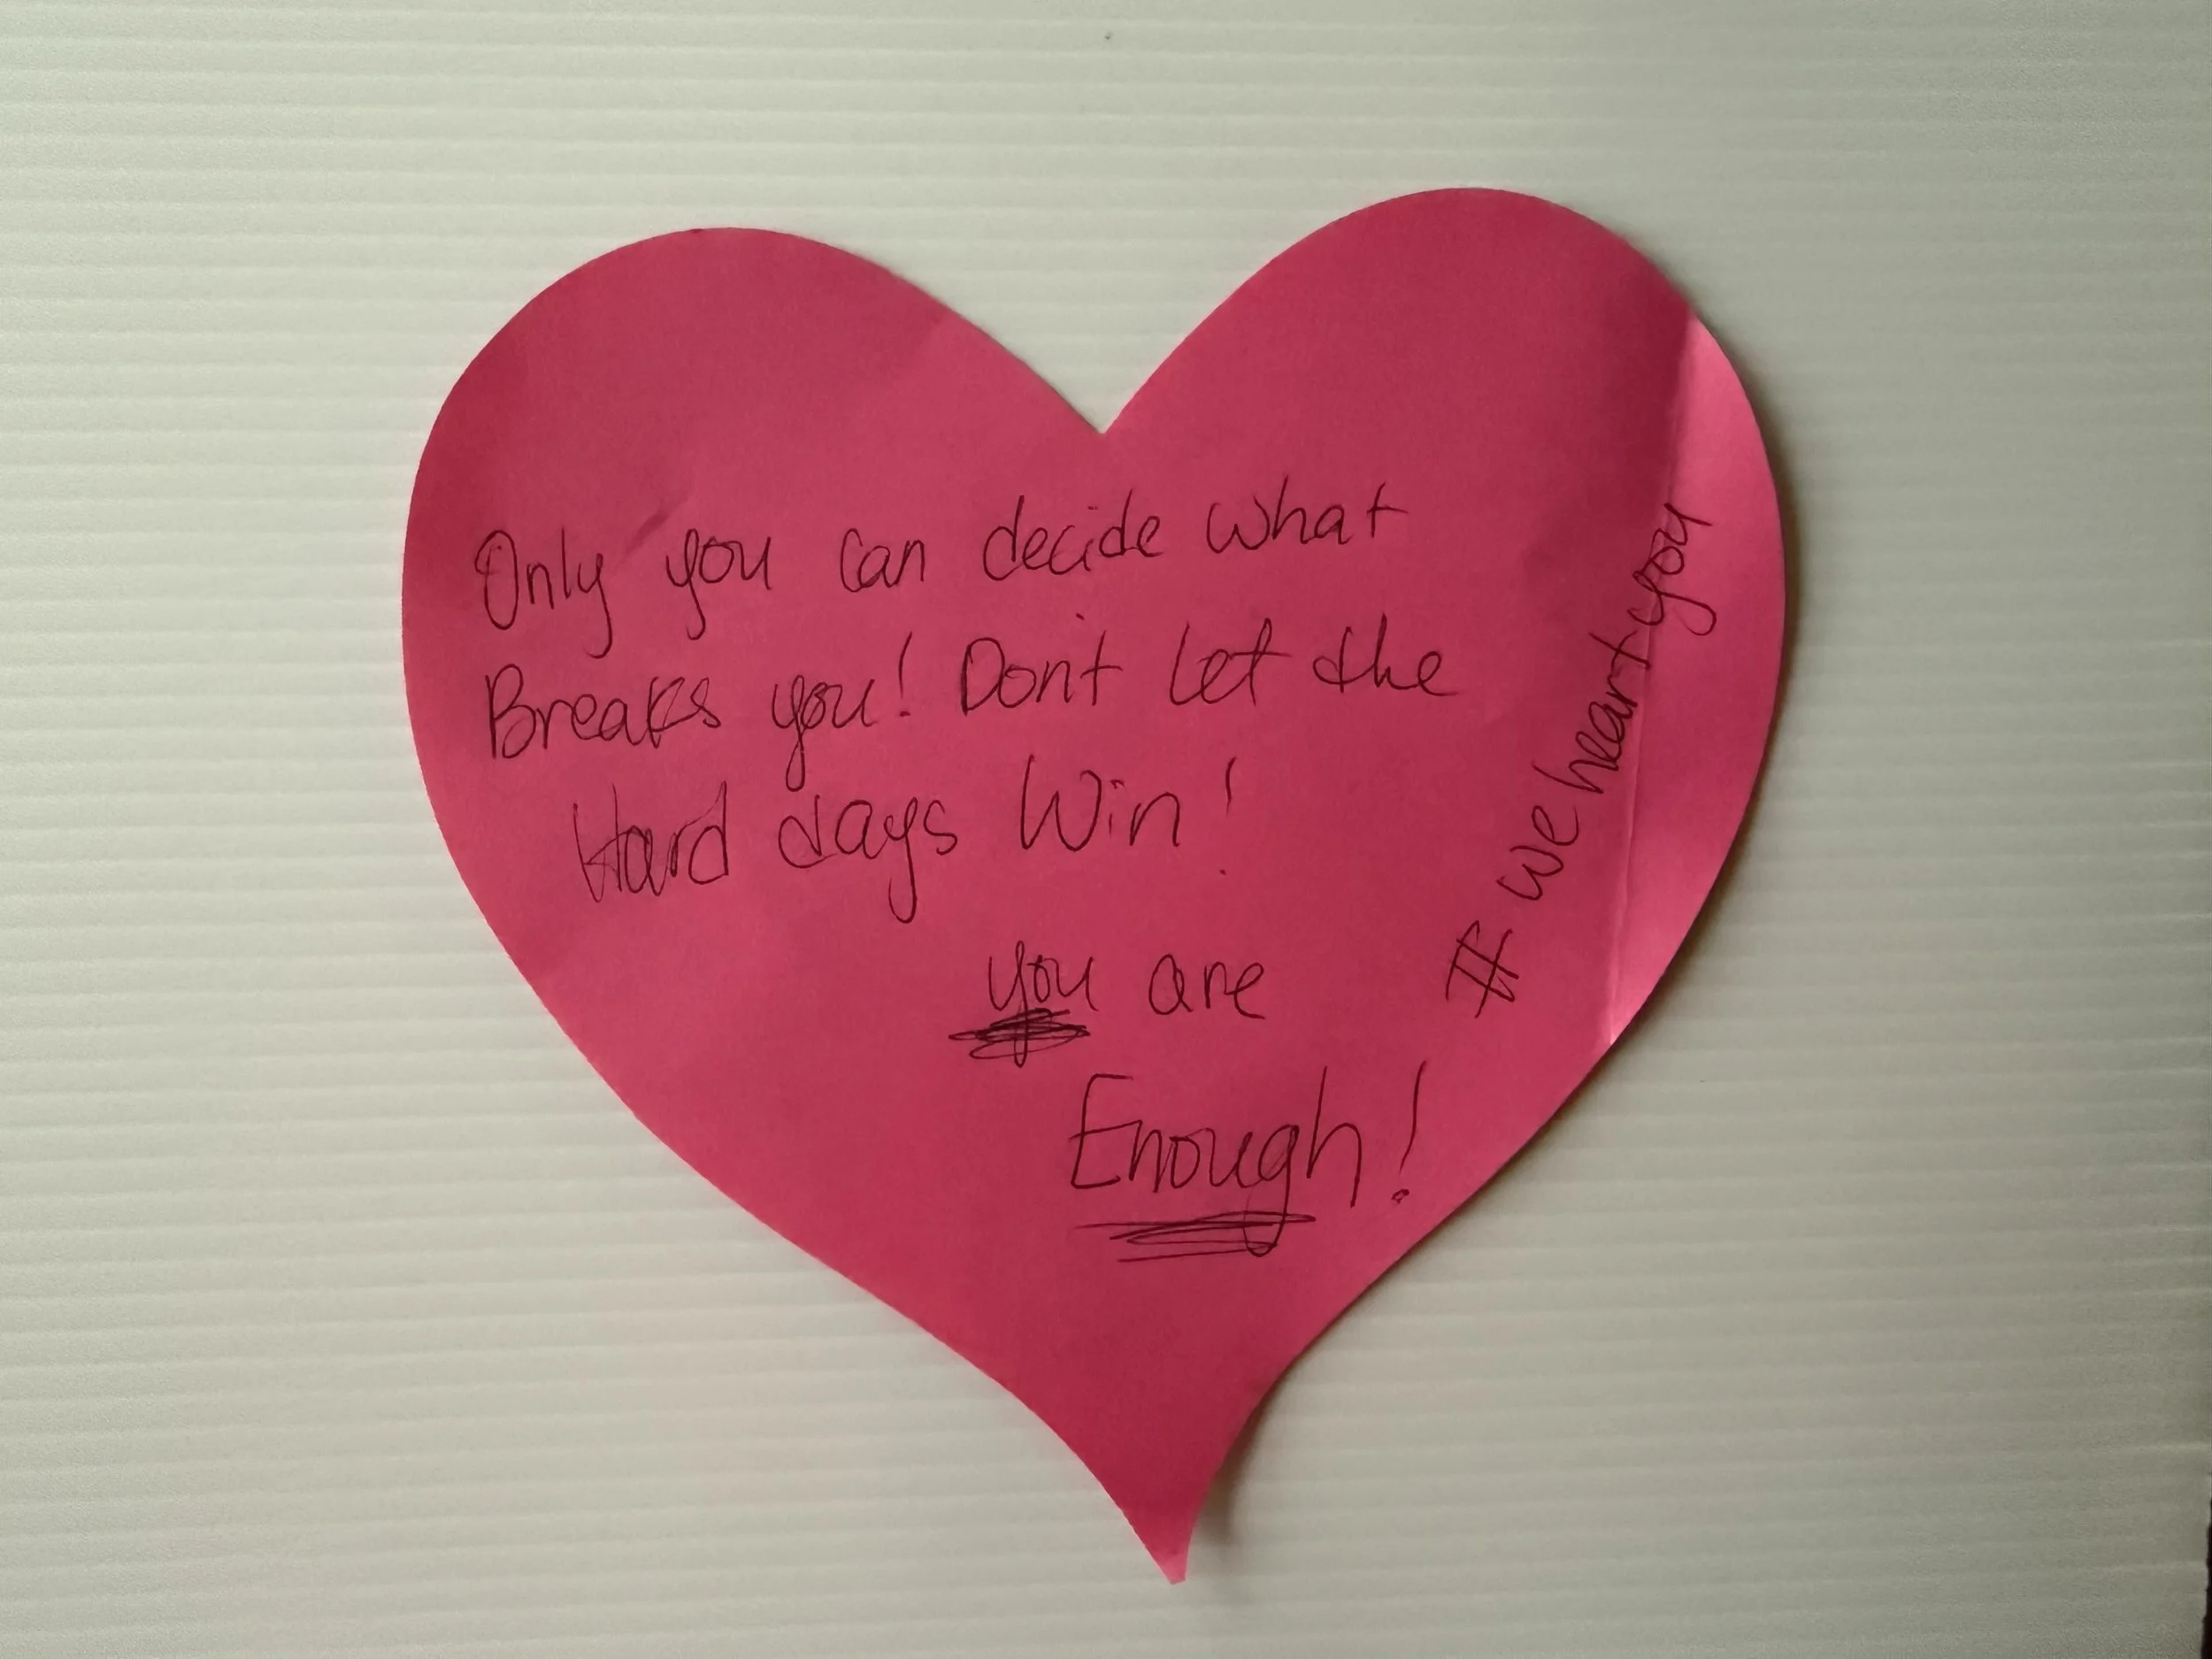 Only you can decide what
Breaks you! Don't let the
Hard days Win!
you are
Enough!
# we heart you